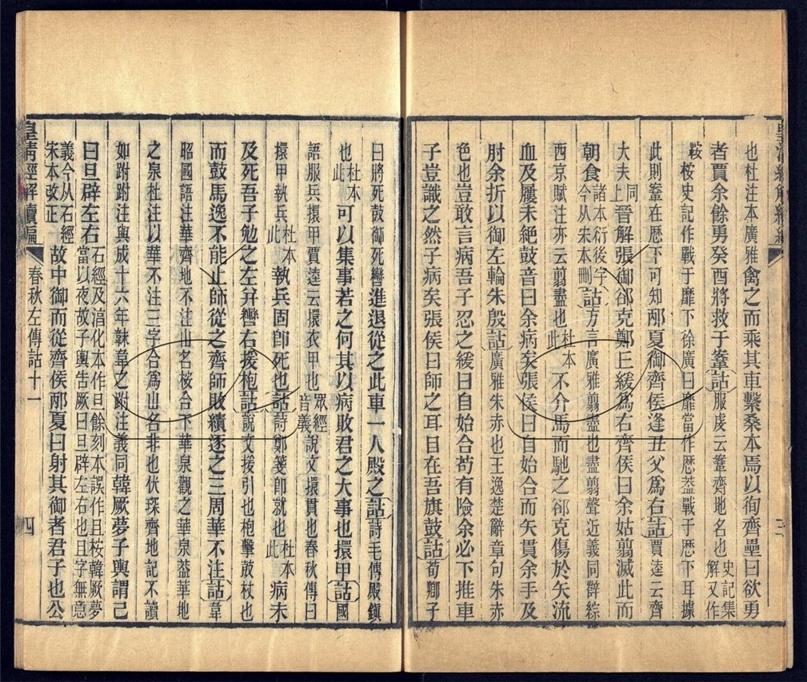 也杜注本廣雅禽之而乘其車繫桑本焉以徇齊壘曰欲勇
者賈余餘勇癸酉將救于鞌詁服虔云鞌齊地名也史記集解又作
鞍桉史記作戰于靡下徐廣曰靡當作歴葢戰于歴下耳據
此則鞌在歴下可知邴夏御齊侯逢丑父爲右詁賈逵云齊
大夫同上晉解張御郤克鄭丘緩爲右齊侯曰余姑翦滅此而
朝食諸本衍後字今从宋本刪詁方言廣雅翦盡也盡翦聲近義同薛綜
西京賦注亦云翦盡也杜本此不介馬而馳之郤克傷於矢流
血及屨未絶鼓音曰余病矣張侯曰自始合而矢貫余手及
肘余折以御左輪朱殷詁廣雅朱赤也王逸楚辭章句朱赤
色也豈敢言病吾子忍之緩曰自始合苟有險余必下推車
子豈識之然子病矣張侯曰師之耳目在吾旗鼓詁荀卿子
曰將死鼓御死轡進退從之此車一人殿之詁詩毛傳殿鎮
也杜本此可以集事若之何其以病敗君之大事也擐甲詁國
語服兵擐甲賈逵云擐衣甲也眾經音義說文擐貫也春秋傳曰
擐甲執兵杜本此執兵固卽死也詁詩鄭箋卽就也杜本此病未
及死吾子勉之左幷轡右援枹詁說文援引也枹擊鼓杖也
而鼓馬逸不能止師從之齊師敗績逐之三周華不注詁韋
昭國語注華齊地不注山名桉合下華泉觀之華泉葢華地
之泉杜注以華不注三字合爲山名非也伏琛齊地記不讀
如跗跗注與成十六年韎韋之跗注義同韓厥夢子輿謂己
曰旦辟左右石經及淳化本作旦餘刻本誤作且桉韓厥夢當以夜故子輿告厥曰旦辟左右也且字無意
義今从石經宋本改正故中御而從齊侯邴夏曰射其御者君子也公
皇清經解續編
春秋左傳詁十一
四